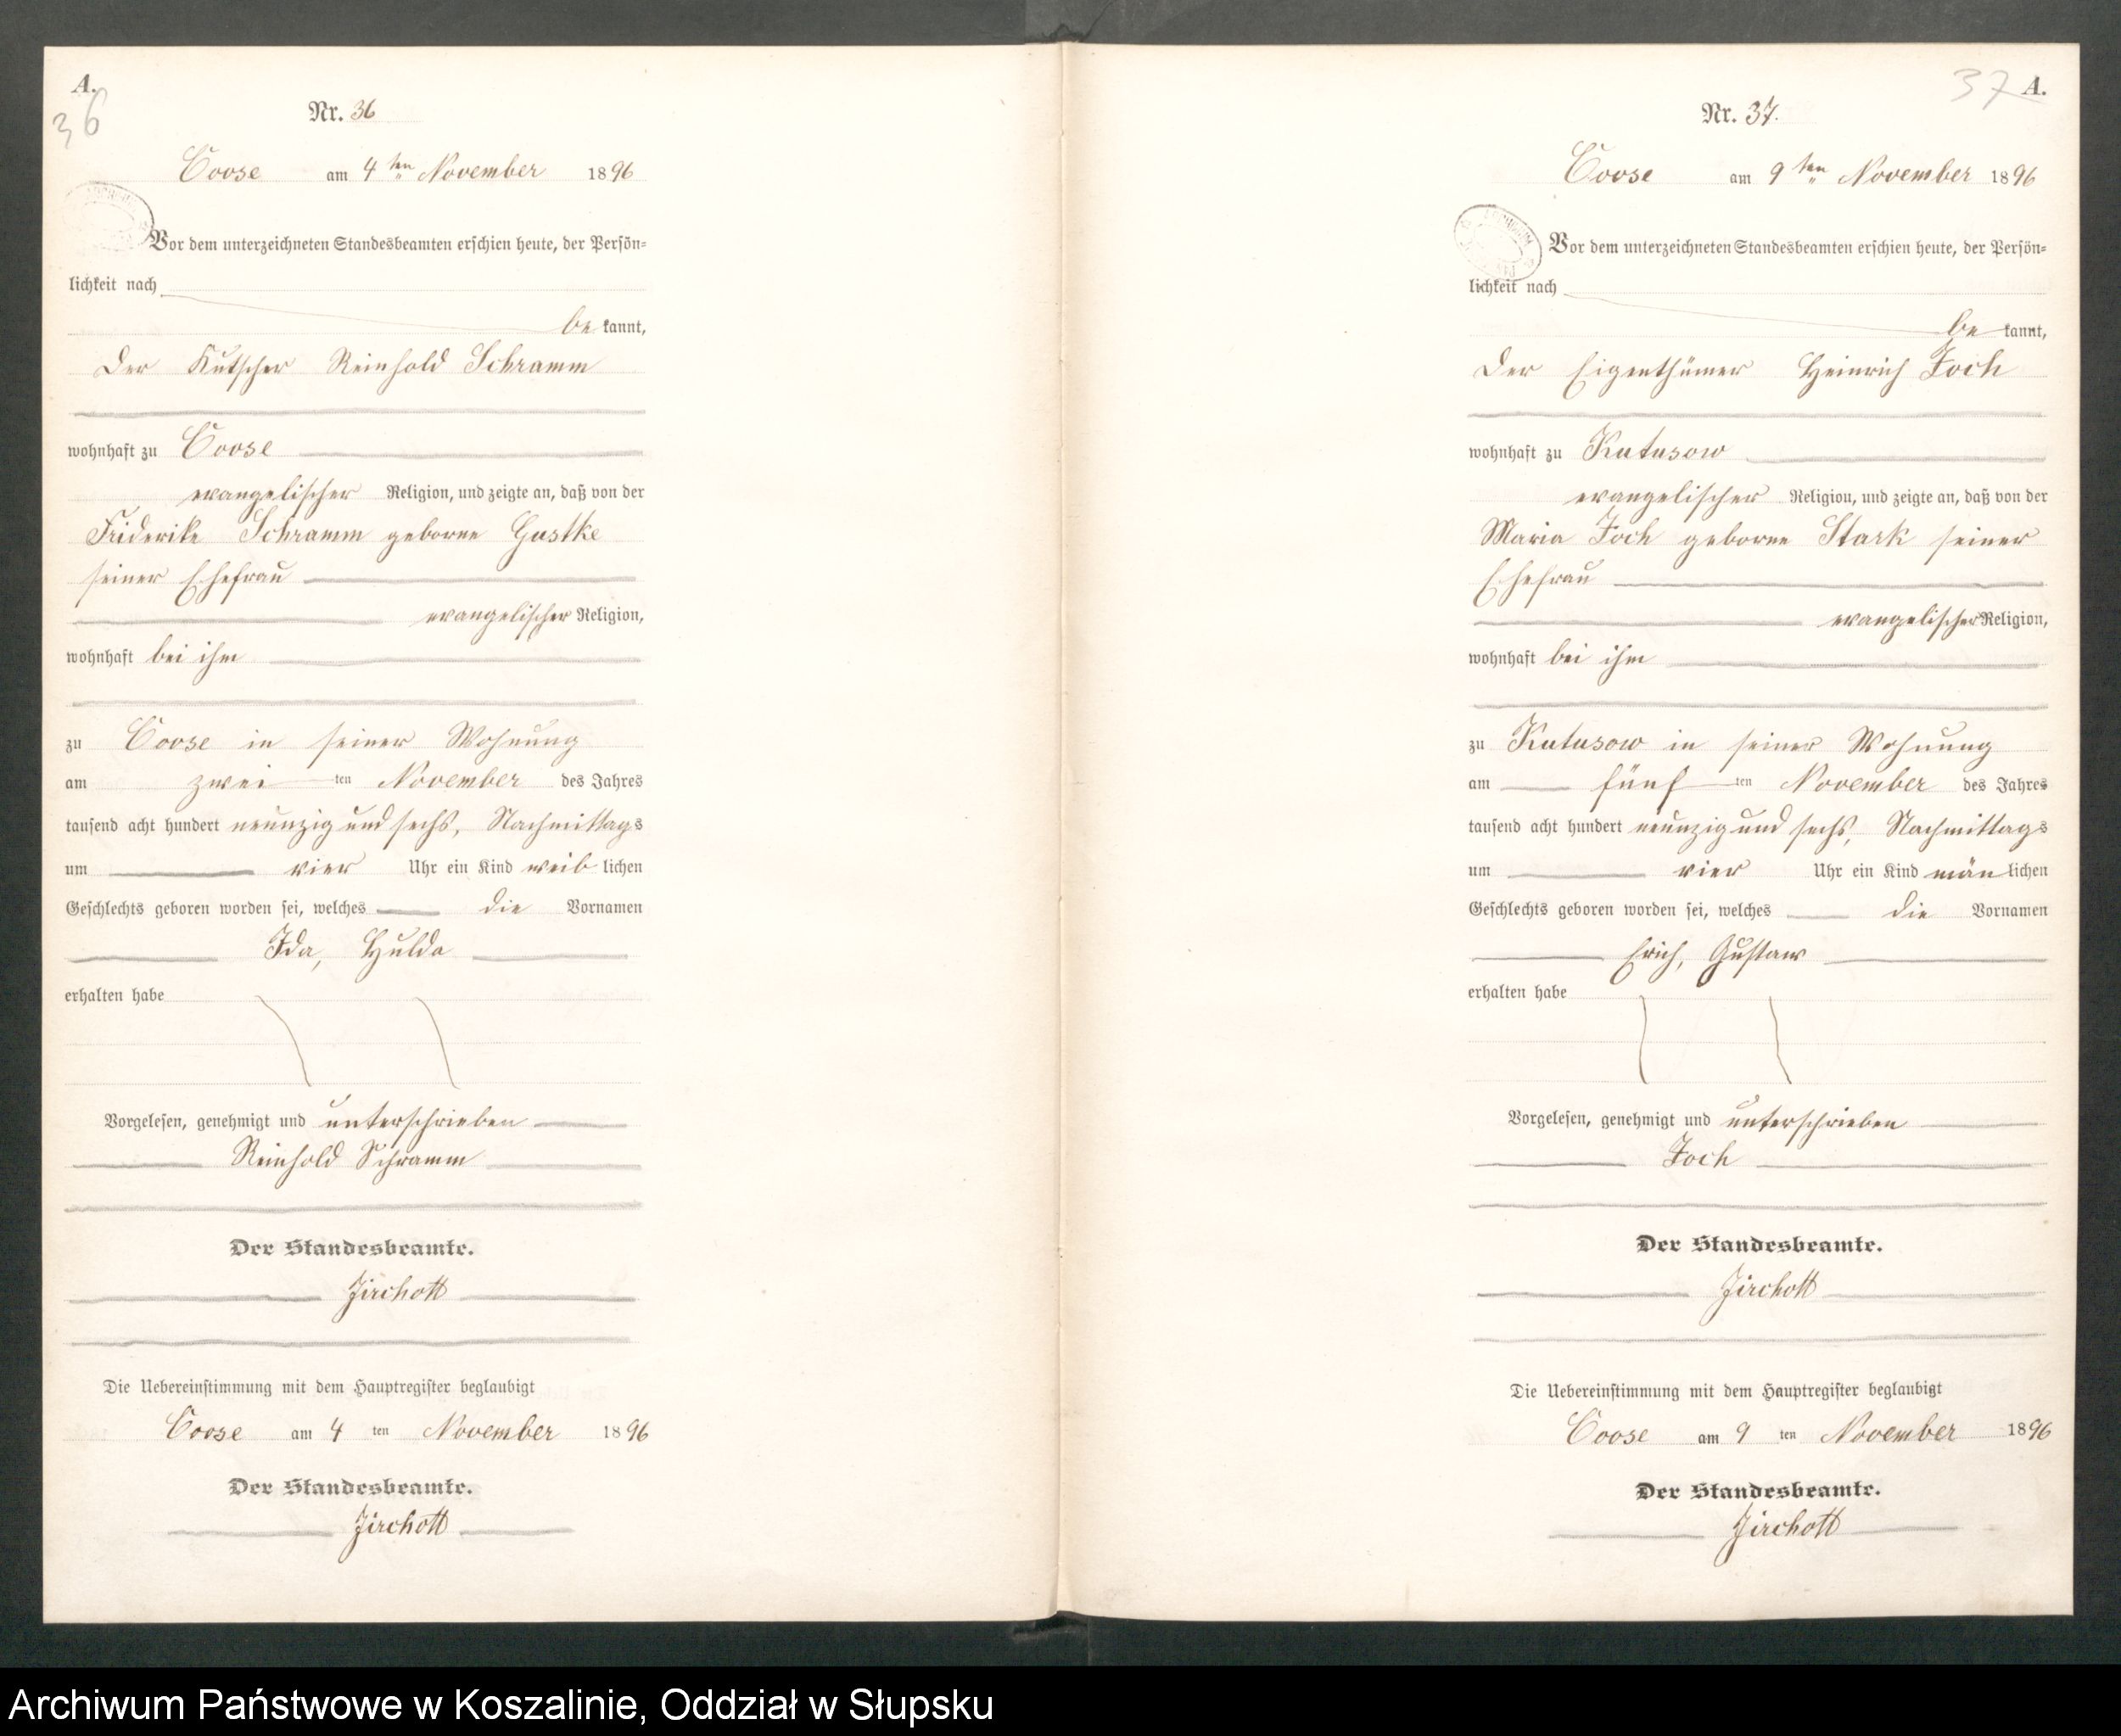 A.
36
Nr. 36
Coose am 4ten November 1896
Vor dem unterzeichneten Standesbeamten erschien heute, der Persön=
lichkeit nach
be kannt,
Der Kutscher Reinhold Schramm
wohnhaft zu Coose
evangelischer Religion, und zeigte an, daß von der
Friderike Schramm geborne Gustke
seiner Ehefrau
evangelischer Religion,
wohnhaft bei ihm
zu Coose in seiner Wohnung
am zwei ten November des Jahres
tausend acht hundert neunzig und sechs, Nachmittags
um vier Uhr ein Kind weib lichen
Geschlechts geboren worden sei, welches die Vornamen
Ida, Hulda
erhalten habe
Vorgelesen, genehmigt und unterschrieben
Reinhold Schramm
Der Standesbeamte.
Zirchott
Die Uebereinstimmung mit dem Hauptregister beglaubigt
Coose am 4 ten November 1896
Der Standesbeamte.
Zirchott
37 A.
Nr. 37.
Coose am 9ten November 1896
Vor dem unterzeichneten Standesbeamten erschien heute, der Persön=
lichkeit nach
be kannt,
Der Eigenthümer Heinrich Joch
wohnhaft zu Kutusow
evangelischer Religion, und zeigte an, daß von der
Maria Joch geborne Stark seiner
Ehefrau
evangelischer Religion,
wohnhaft bei ihm
zu Kutusow in seiner Wohnung
am fünf ten November des Jahres
tausend acht hundert neunzig und sechs, Nachmittags
um vier Uhr ein Kind män lichen
Geschlechts geboren worden sei, welches die Vornamen
Erich, Gustaw
erhalten habe
Vorgelesen, genehmigt und unterschrieben
Joch
Der Standesbeamte.
Zirchott
Die Uebereinstimmung mit dem Hauptregister beglaubigt
Coose am 9 ten November 1896
Der Standesbeamte.
Zirchott
Archiwum Państwowe w Koszalinie, Oddział w Słupsku